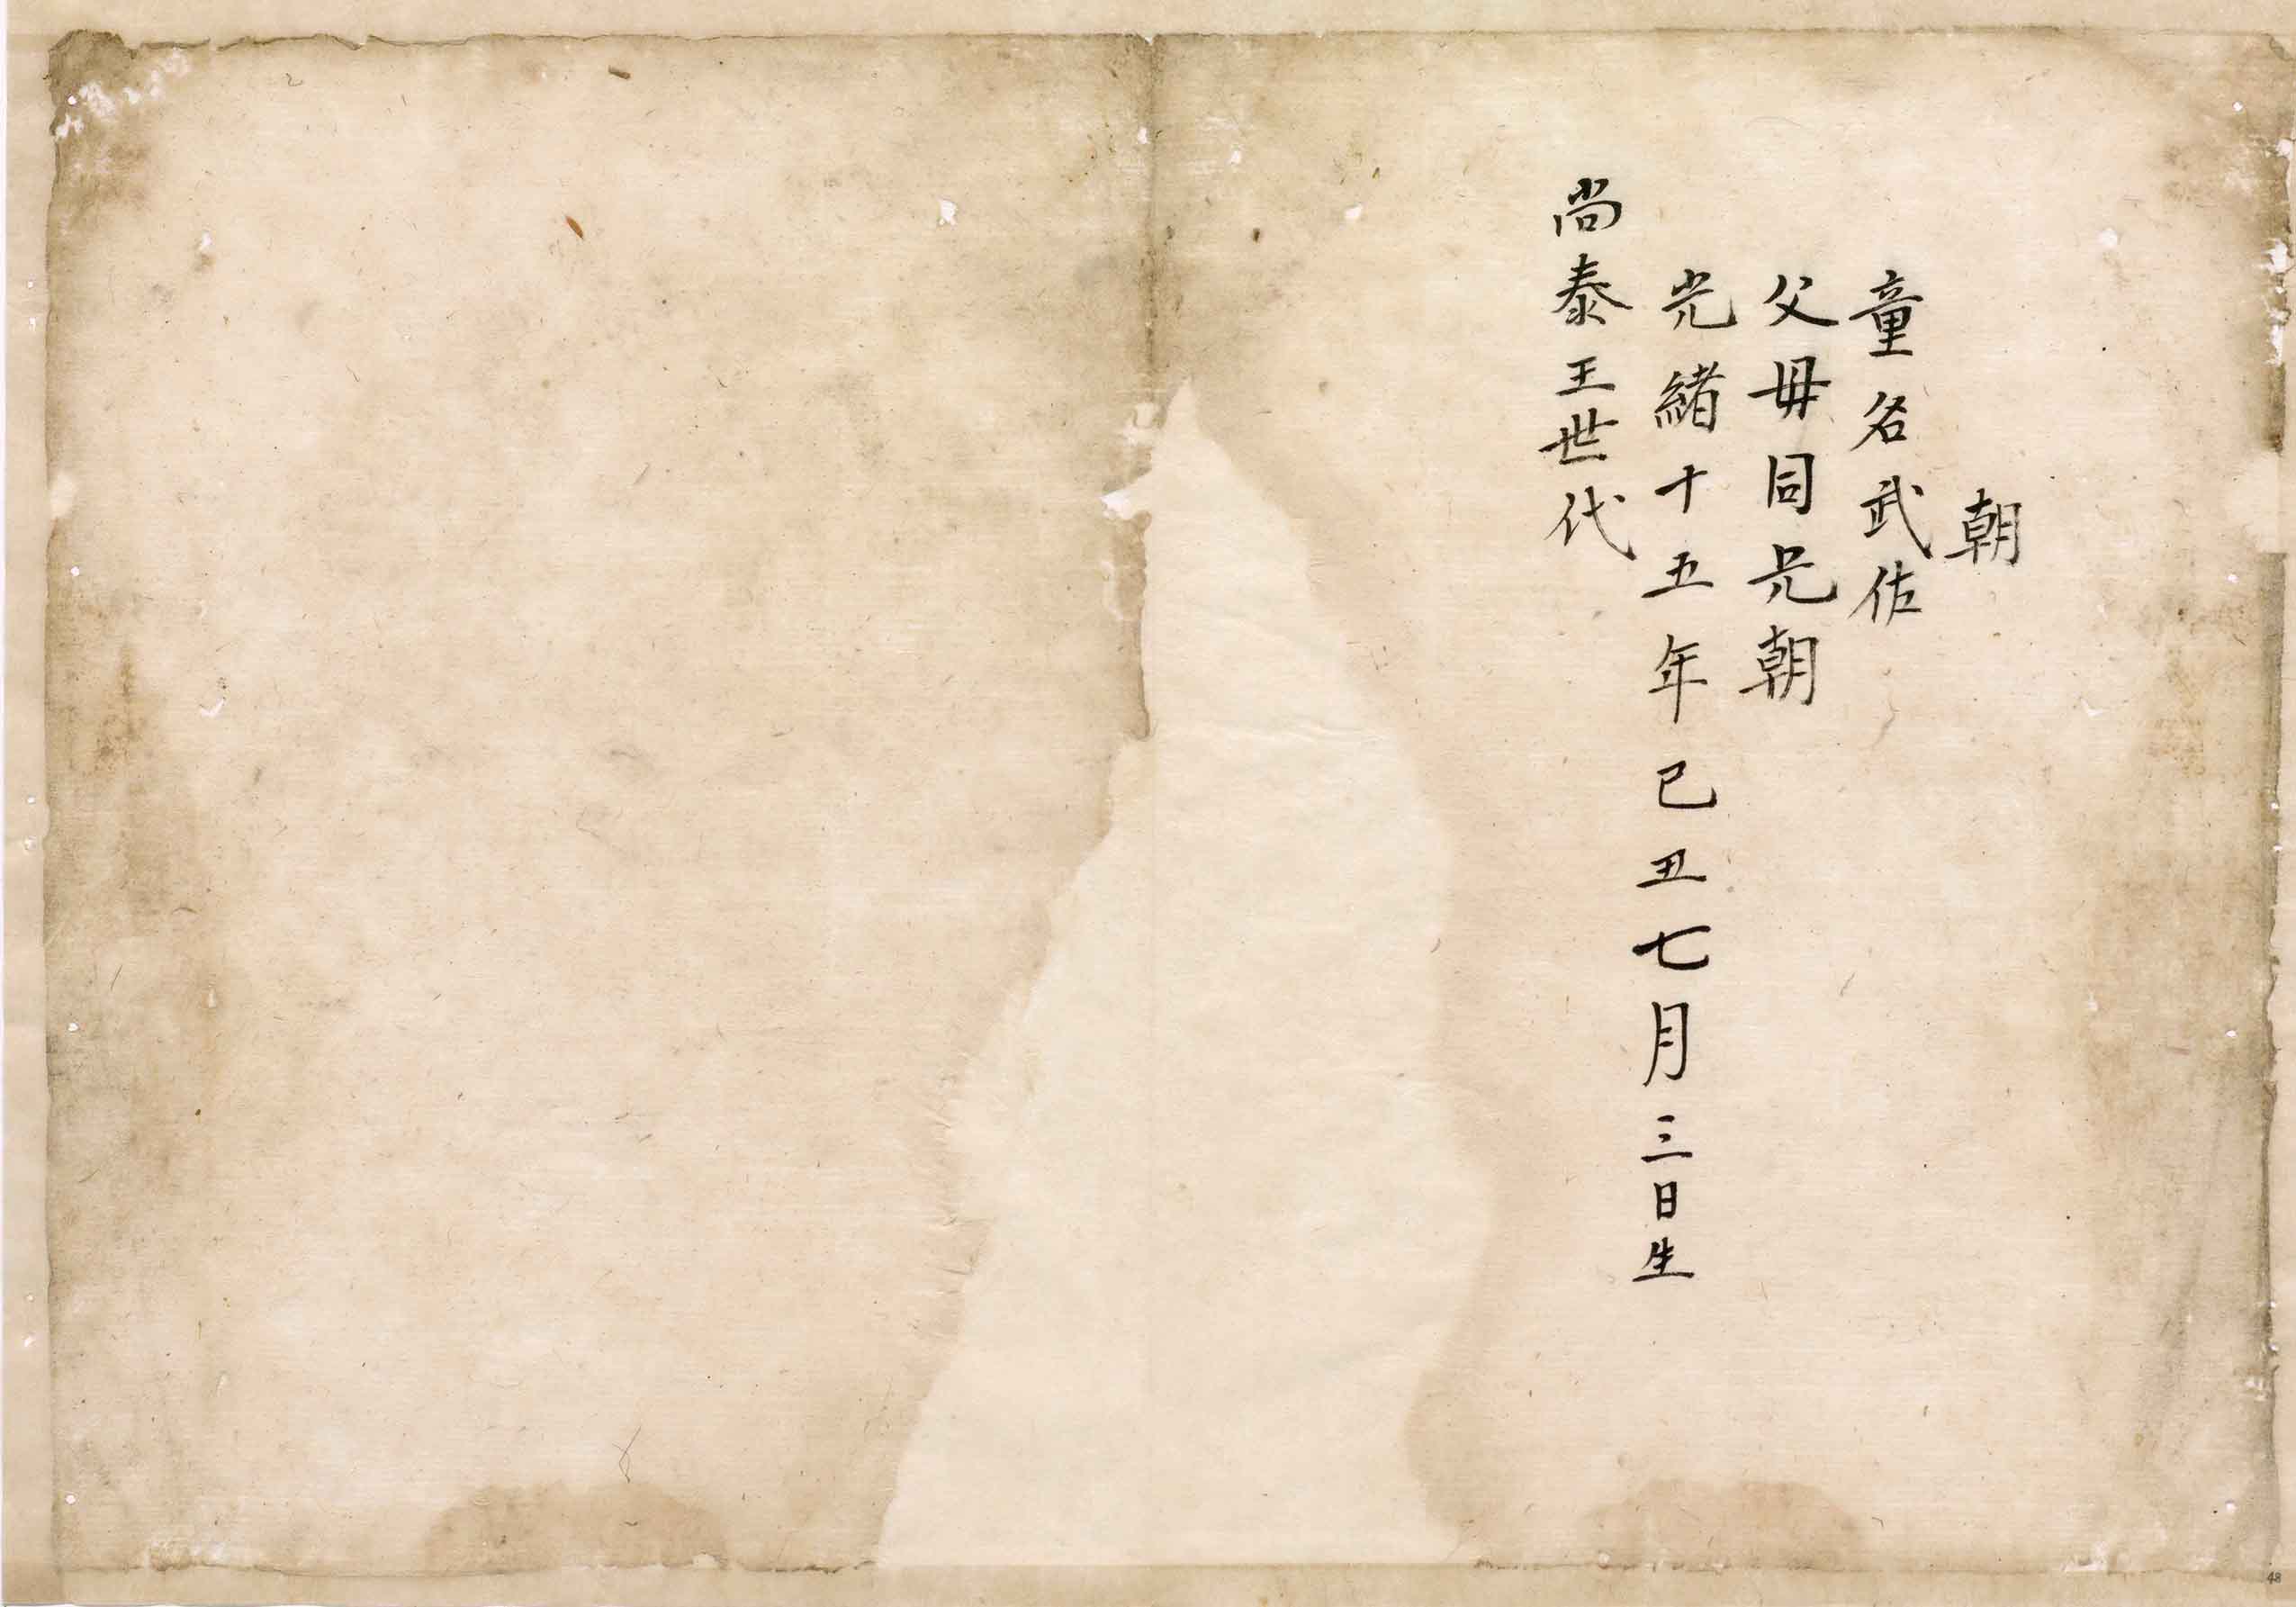 朝
童名武佐
父毋同兄朝
光緒十五年己丑七月三日生
尚泰王世代
48